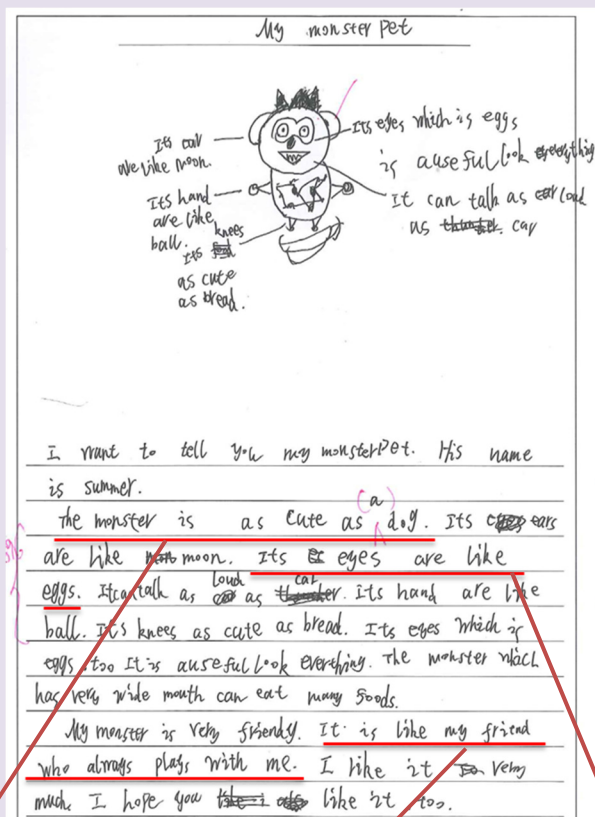 My monster pet
Its ear
are like moon.
Its hand
are like
ball.
Its knees
as cute
as bread.
Its eyes which is eggs
is a useful look everything
It can talk as loud
as car
I want to tell you my monster pet. His name
is summer.
The monster is as cute as (a) dog. Its ears
are like moon. Its eyes are like
eggs. It can talk as loud as car. Its hand are like
ball. It's knees as cute as bread. Its eyes which is
eggs too It is a useful look everthing. The monster which
has very wide mouth can eat many foods.
My monster is very friendly. It is like my friend
who always plays with me. I like it very
much. I hope you like it too.